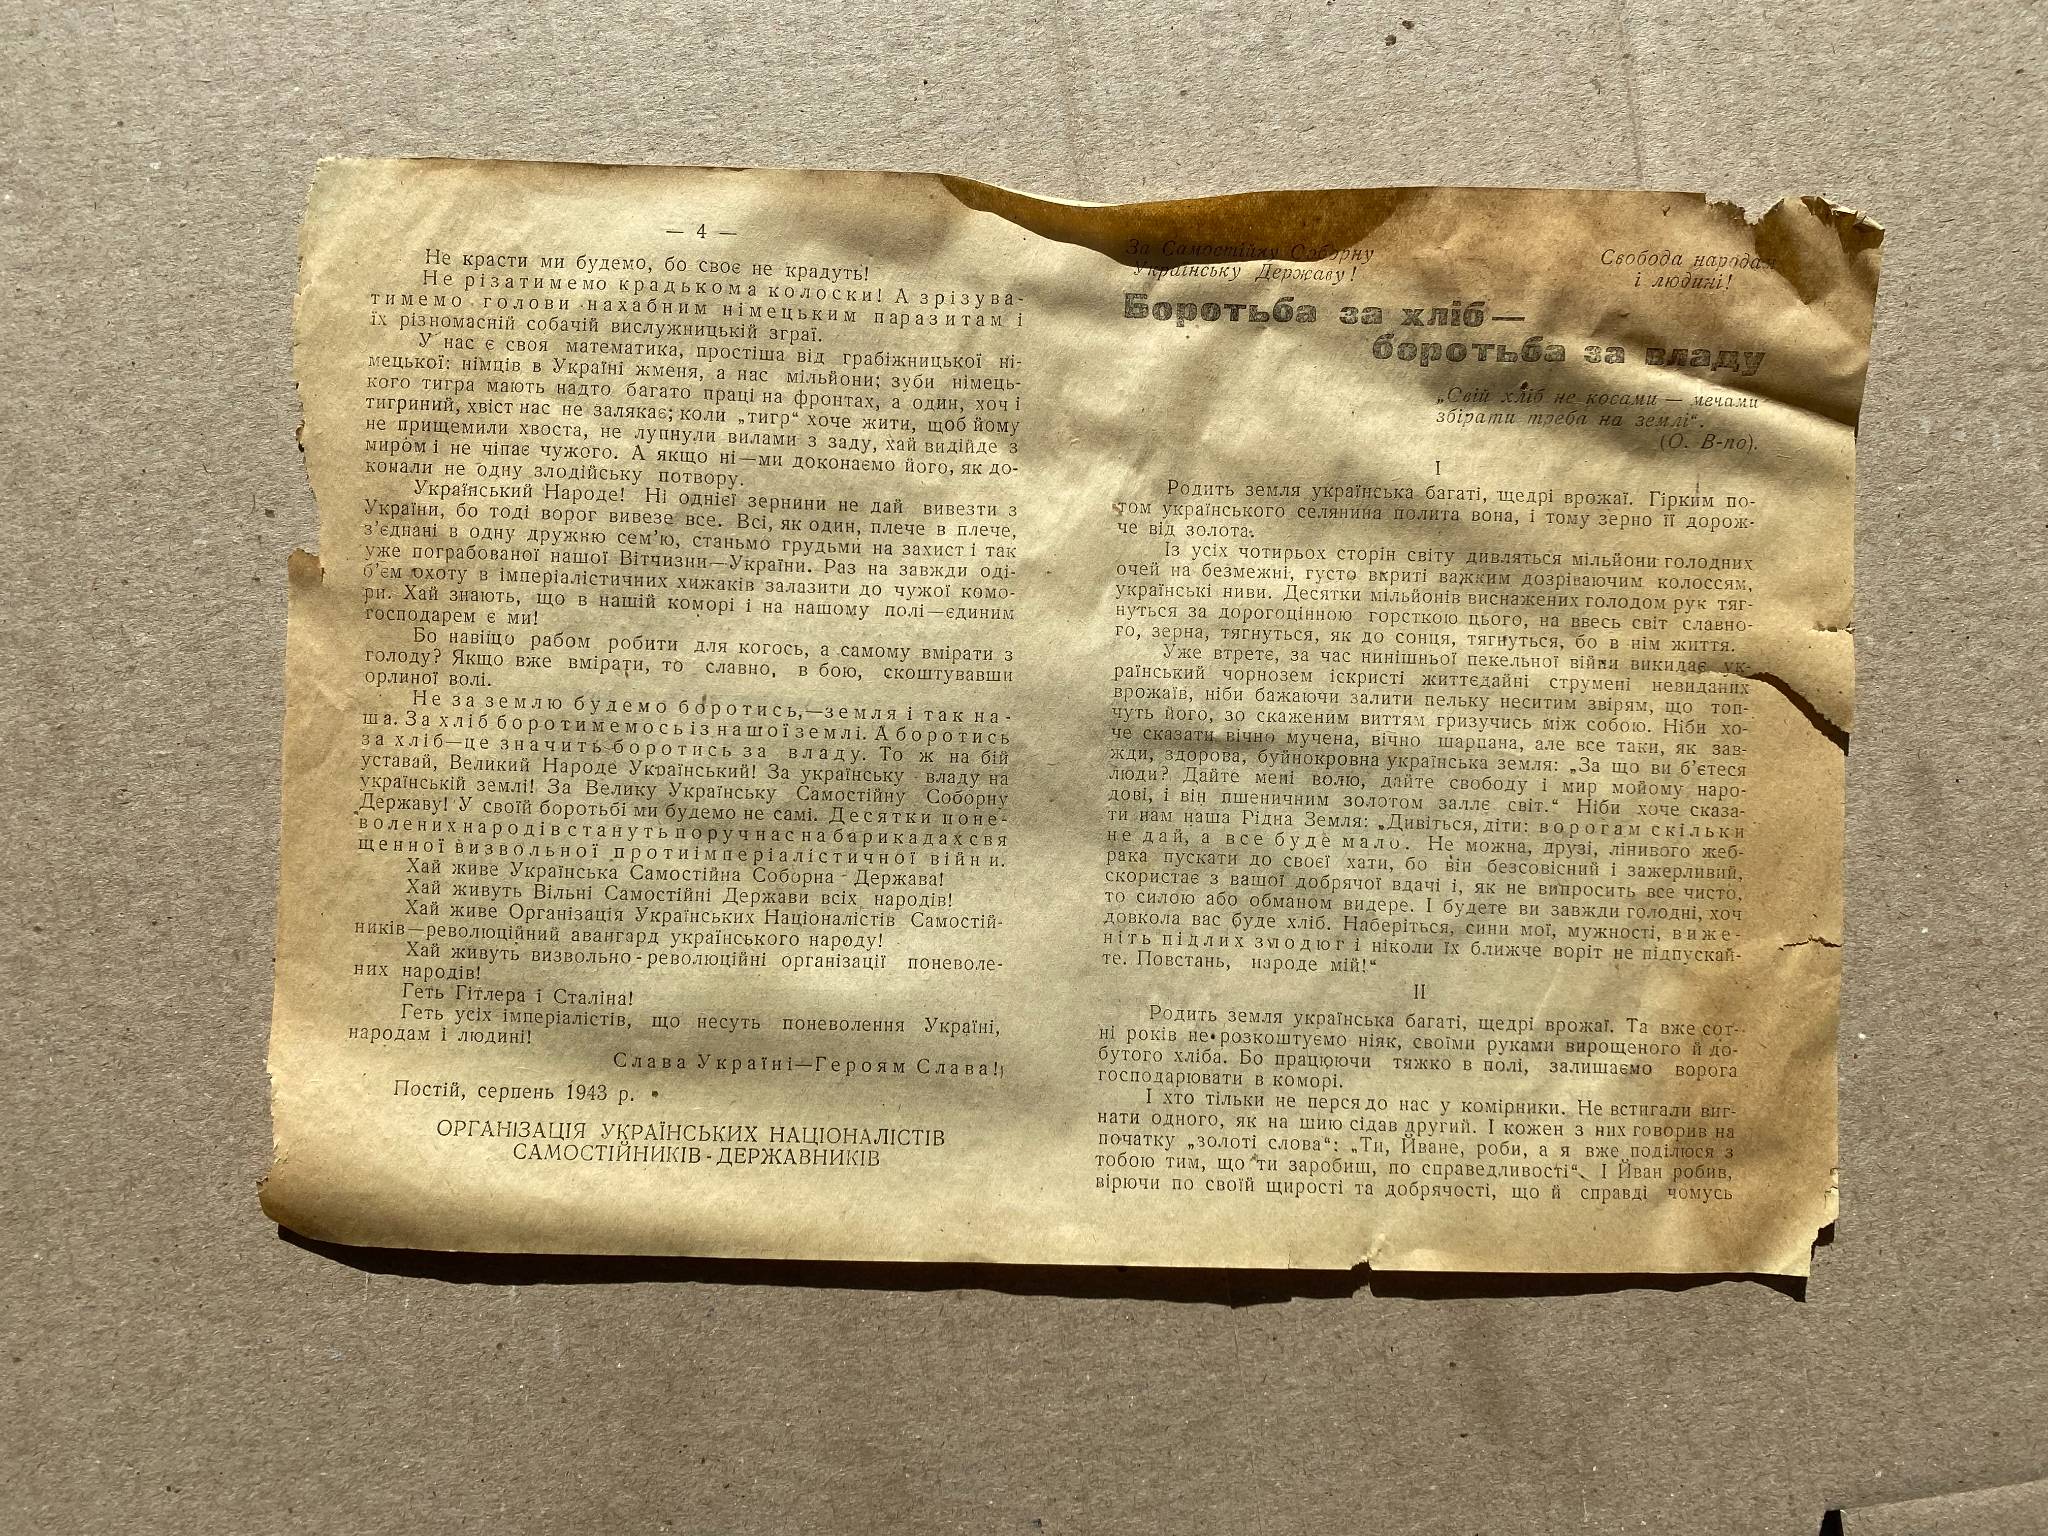 — 4 —
Не красти ми будемо, бо своє не крадуть!
Не різатимемо крадькома колоски! А зрізува-
тимемо голови нахабним німецьким паразитам і
їх різномасній собачій вислужницькій зграї.
У нас є своя математика, простіша від грабіжницької ні-
мецької: німців в Україні жменя, а нас мільйони; зуби німець-
кого тигра мають надто багато праці на фронтах, а один, хоч і
тигриний, хвіст нас не залякає; коли „тигр“ хоче жити, щоб йому
не прищемили хвоста, не лупнули вилами з заду, хай видійде з
миром і не чіпає чужого. А якщо ні—ми доконаємо його, як до-
конали не одну злодійську потвору.
Український Народе! Ні однієї зернини не дай вивезти з
України, бо тоді ворог вивезе все. Всі, як один, плече в плече,
з’єднані в одну дружню сем’ю, станьмо грудьми на захист і так
уже пограбованої нашої Вітчизни—України. Раз на завжди оді-
б’єм охоту в імперіалістичних хижаків залазити до чужої комо-
ри. Хай знають, що в нашій коморі і на нашому полі—єдиним
господарем є ми!
Бо навіщо рабом робити для когось, а самому вмірати з
голоду? Якщо вже вмірати, то славно, в бою, скоштувавши
орлиної волі.
Не за землю будемо боротись,—земля і так на-
ша. За хліб боротимемось із нашої землі. А боротись
за хліб—це значить боротись за владу. То ж на бій
уставай, Великий Народе Український! За українську владу на
українській землі! За Велику Українську Самостійну Соборну
Державу! У своїй боротьбі ми будемо не самі. Десятки поне-
волених народів стануть поруч нас на барикадах свя
щенної визвольної протиімперіалістичної війни.
Хай живе Українська Самостійна Соборна - Держава!
Хай живуть Вільні Самостійні Держави всіх народів!
Хай живе Організація Українських Націоналістів Самостій-
ників—революційний авангард українського народу!
Хай живуть визвольно-революційні організації поневоле-
них народів!
Геть Гітлера і Сталіна!
Геть усіх імперіалістів, що несуть поневолення Україні,
народам і людині!
Слава Україні—Героям Слава!
Постій, серпень 1943 р.
ОРГАНІЗАЦІЯ УКРАЇНСЬКИХ НАЦІОНАЛІСТІВ
САМОСТІЙНИКІВ-ДЕРЖАВНИКІВ
За Самостійну Соборну
Українську Державу!
Свобода народам
і людині!
Боротьба за хліб—
боротьба за владу
„Свій хліб не косами — мечами
збірати треба на землі“.
(О. В-по).
I
Родить земля українська багаті, щедрі врожаї. Гірким по-
том українського селянина полита вона, і тому зерно її дорож-
че від золота.
Із усіх чотирьох сторін світу дивляться мільйони голодних
очей на безмежні, густо вкриті важким дозріваючим колоссям,
українські ниви. Десятки мільйонів виснажених голодом рук тяг-
нуться за дорогоцінною горсткою цього, на ввесь світ славно-
го, зерна, тягнуться, як до сонця, тягнуться, бо в нім життя.
Уже втретє, за час нинішньої пекельної війни викидає ук-
раїнський чорнозем іскристі життєдайні струмені невиданих
врожаїв, ніби бажаючи залити пельку неситим звірям, що топ-
чуть його, зо скаженим виттям гризучись між собою. Ніби хо-
че сказати вічно мучена, вічно шарпана, але все таки, як зав-
жди, здорова, буйнокровна українська земля: „За що ви б’єтеся
люди? Дайте мені волю, дайте свободу і мир мойому наро-
дові, і він пшеничним золотом заллє світ.“ Ніби хоче сказа-
ти нам наша Рідна Земля: „Дивіться, діти: ворогам скільки
не дай, а все буде мало. Не можна, друзі, лінивого жеб-
рака пускати до своєї хати, бо він безсовісний і зажерливий,
скористає з вашої добрячої вдачі і, як не випросить все чисто,
то силою або обманом видере. І будете ви завжди голодні, хоч
довкола вас буде хліб. Наберіться, сини мої, мужності, виже-
ніть підлих злодюг і ніколи їх ближче воріт не підпускай-
те. Повстань, народе мій!“
II
Родить земля українська багаті, щедрі врожаї. Та вже сот-
ні років не розкоштуємо ніяк, своїми руками вирощеного й до-
бутого хліба. Бо працюючи тяжко в полі, залишаємо ворога
господарювати в коморі.
І хто тільки не перся до нас у комірники. Не встигали виг-
нати одного, як на шию сідав другий. І кожен з них говорив на
початку „золоті слова“: „Ти, Йване, роби, а я вже поділюся з
тобою тим, що ти заробиш, по справедливості“. І Йван робив,
вірючи по своїй щирості та добрячості, що й справді чомусь